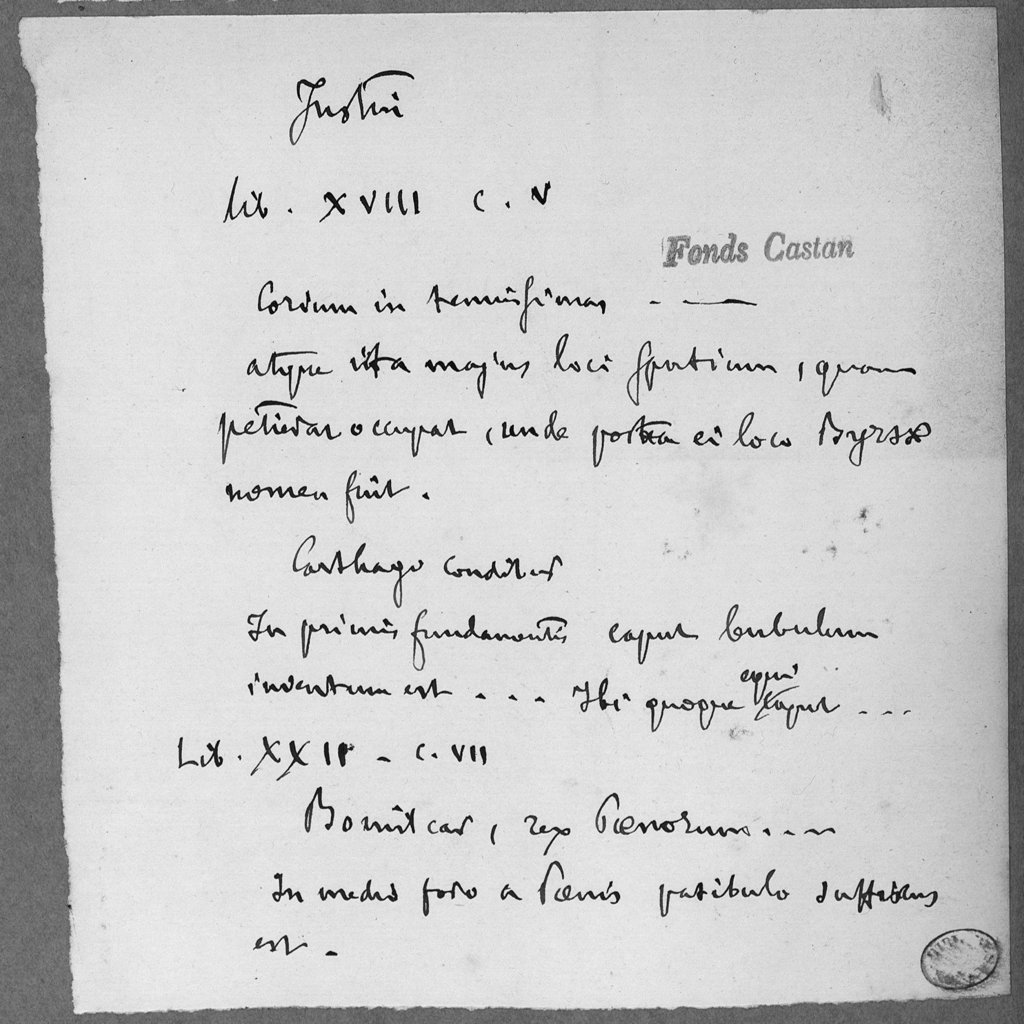 Justin
Lib. XVIII C. V
Fonds Castan
Corium in tenuissimas - —
atque ita majus loci spatium, quam
petierat occupat, unde postea ei loco Byrsæ
nomen fuit.
Carthago conditur
In primis fundamentis caput bubulum
inventum est . . . Ibi quoque equi caput ...
Lib. XXII - C. VII
Bomilcar, rex Pœnorum....
In medio foro a Pœnis patibulo suffixus
est.